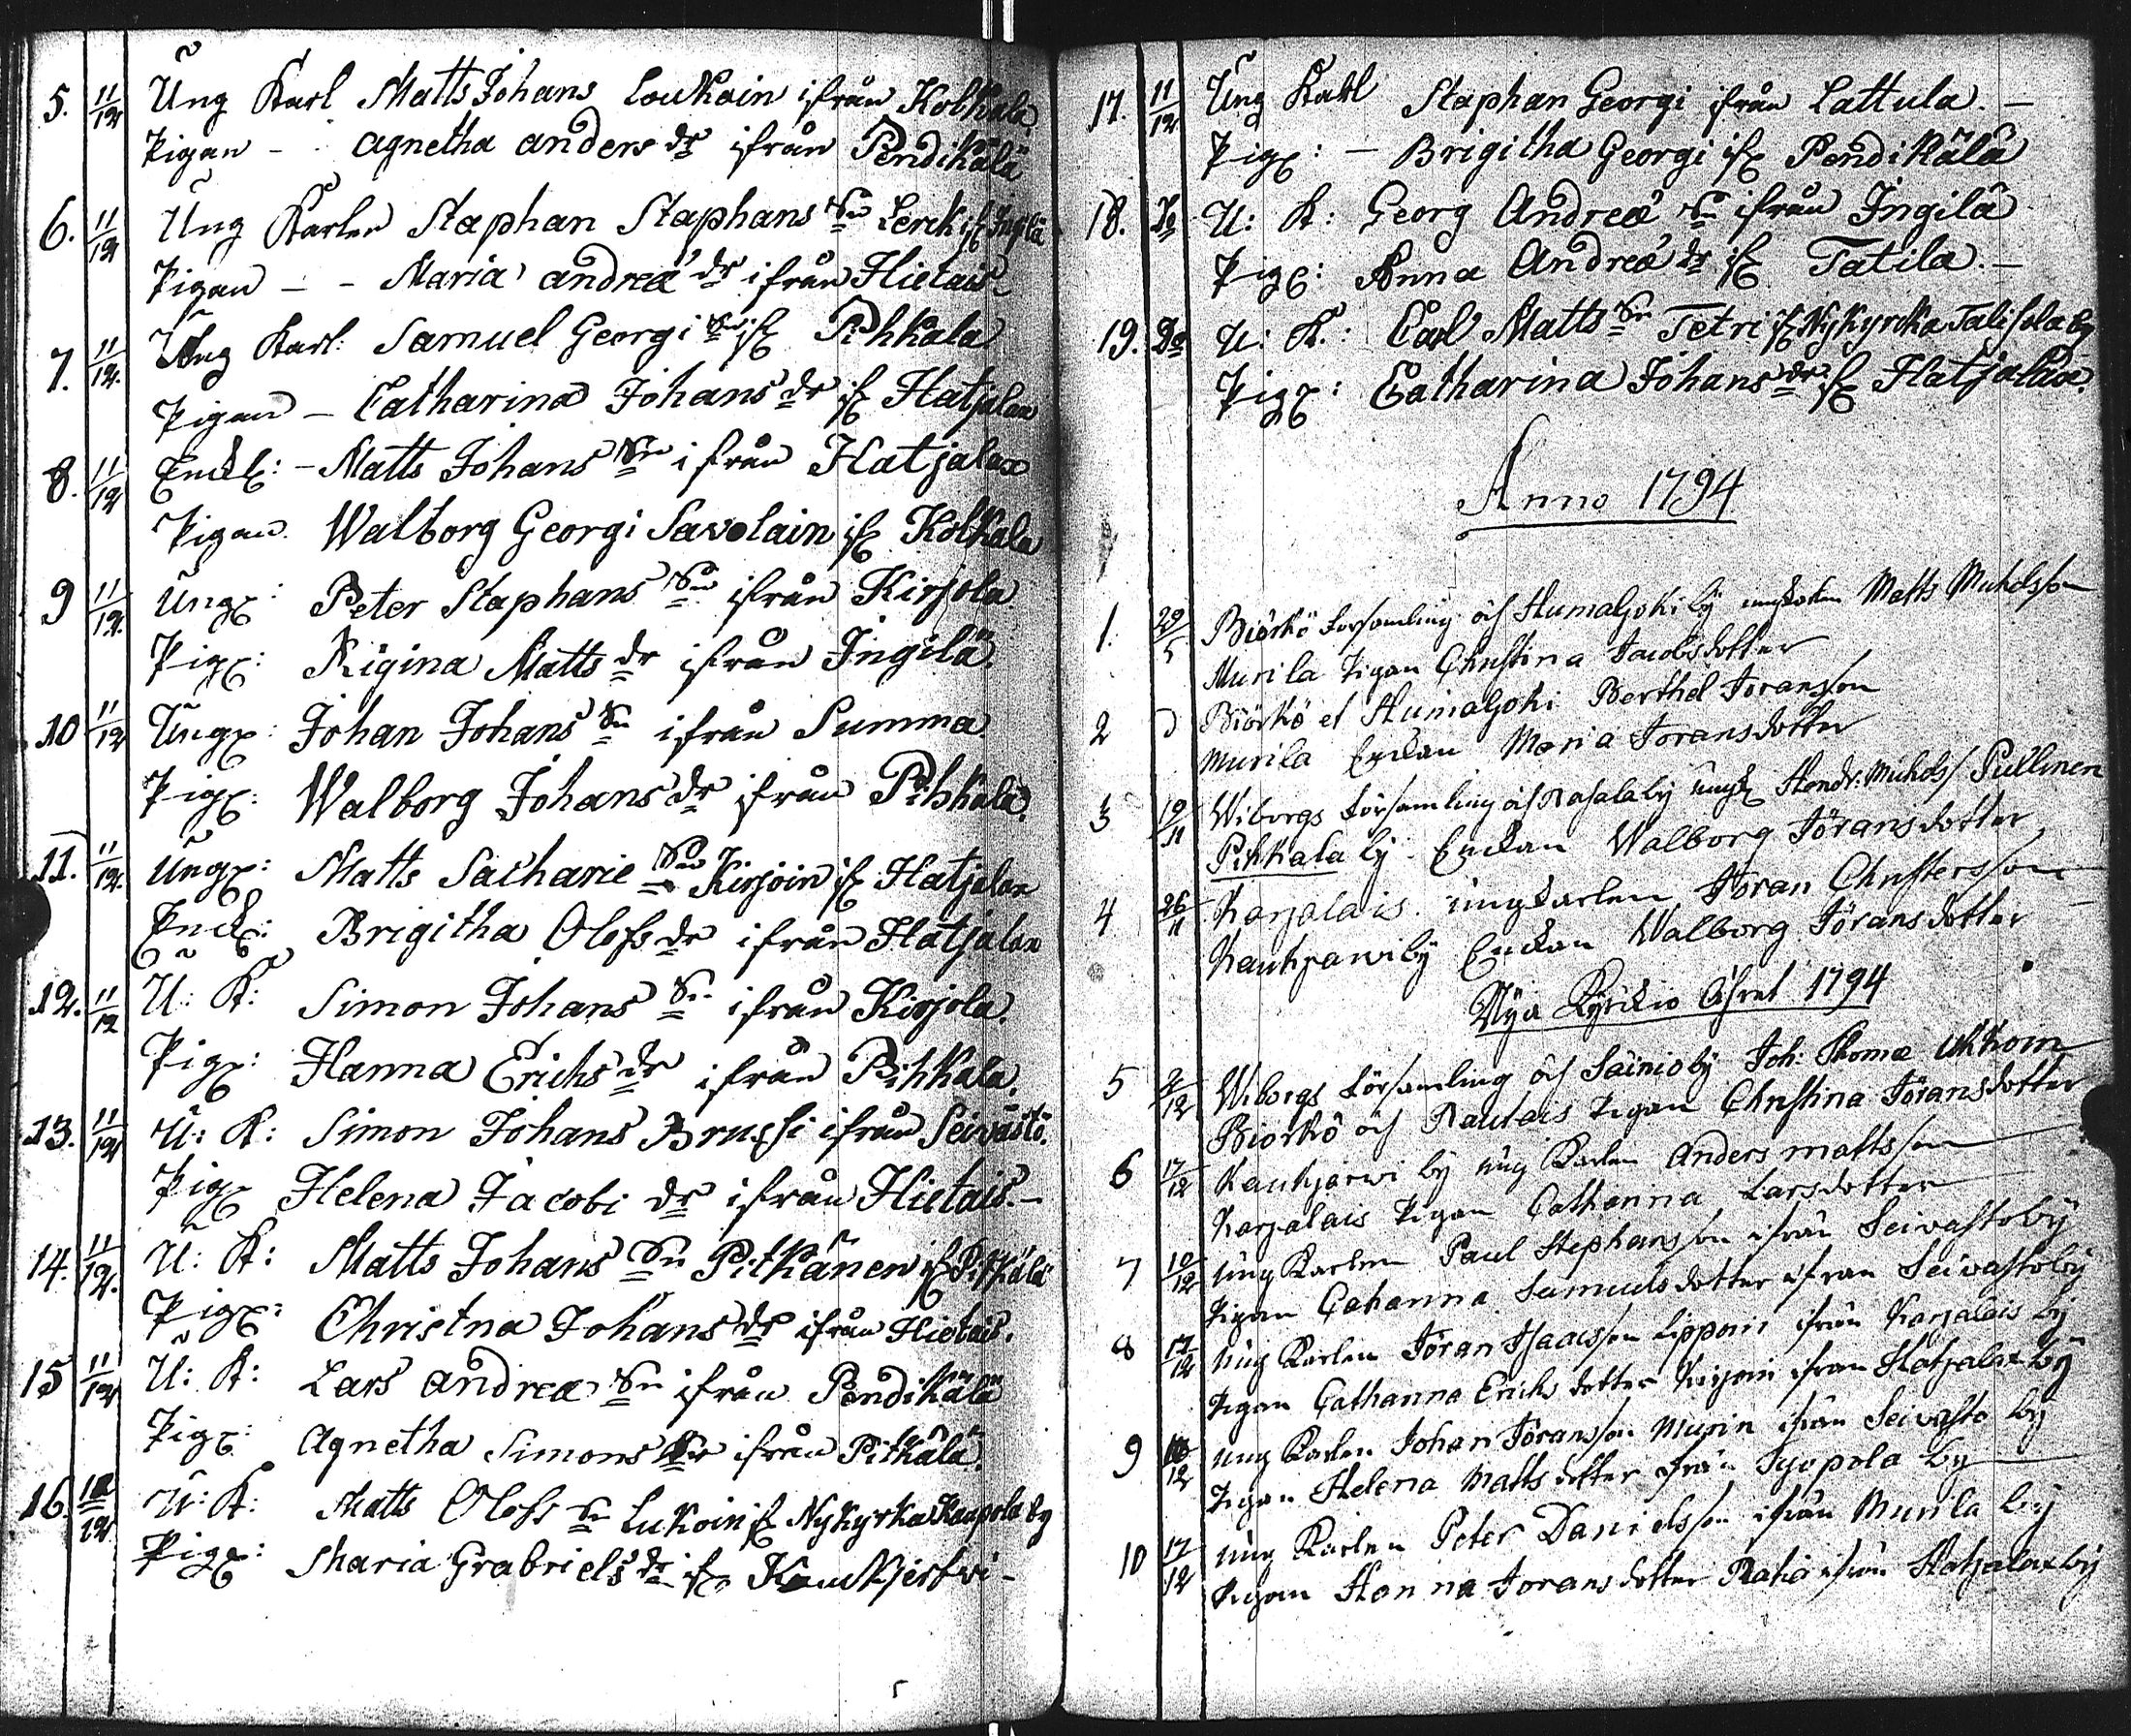 5. 11/12 Ung Karl Matts Johans Loukain ifrån Kolkala
Pigan - - Agnetha Anders dr ifrån Pendikälä
6. 11/12 Ung Karlen Staphan Staphans Sn Lerck if Ingilä
Pigan - - Maria Andreæ dr ifrån Hietais
7. 11/12. Ung Karl: Samuel Georgi Sn if Pihkala
Pigan - Catharina Johans dr if Hatjalax
8. 11/12 Enckl: - Matts Johans Sn ifrån Hatjalax
Pigan. Walborg Georgi Savolain if Kolkala
9 11/12. Ung: Peter Staphans Sn ifrån Kirjola
Pig: Rigina Matts dr ifrån Ingilä.
10 11/12 Ung: Johan Johans Sn ifrån Summa.
Pig: Walborg Johans dr ifrån Pihkala.
11. 11/12. Ung: Matts Sacharie Sn Kirjoin if Hatjalax
Enck: Brigitha Olofs dr ifrån Hatjalax
12. 11/12 U: K: Simon Johans Sn ifrån Kirjola.
Pig: Hanna Erichs dr ifrån Pihkala.
13. 11/12 U: K: Simon Johans Brussi ifrån Seivästö.
Pig Helena Jacobi dr ifrån Hietais. -
14. 11/12. U: K: Matts Johans Sn Pitkänen if Pitkälä
Pig: Christna Johans dr ifrån Hietais.
15 11/12 U: K: Lars Andreæ Sn ifrån Pendikälä
Pig: Agnetha Simons dr ifrån Pitkälä.
16. 12/12 U: K: Matts Olofs Sn Lukoin if Nykyrka Kaupola by
Pig: Maria Grabriels dr if Kaukjerfwi -
17. 11/12. Ung Karl Staphan Georgi ifrån Lattula. -
Pig: - Brigitha Georgi if Pendikälä
18. Do U: K: Georg Andreæ Sn ifrån Ingilä
Pig: Anna Andreæ dr if Tatila. -
19. Do U: K.: Carl Matts Sn Tetri if Nykyrcka Talisola by
Pig: Catharina Johans dr if Hatjalax.
Anno 1794
1. 29/5 Biörkö Forsamling och Humaljoki by ungkarlen Matts Michelsson
Murila Pigan Christina Jacobsdotter
2 D Biörkö et Humaljoki Berthel Joransson
Murila Enckan Maria Joransdotter
3 19/11 Wiborgs Församling och Rasala by ungk Hendr: Michels Pullinen
Pihkala by Enckan Walborg Jöransdotter
4 26/11 Karjalais ungkarlen Joran Christersson
Kaukjarwi by Enckan Walborg Jöransdotter
Nya Kyrckio Åhret 1794
5 2/12 Wiborgs Församling och Sainio by Joh: Thomæ Ukkoin
Biorkö och Rautais Pigan Christina Jöransdotter
6 17/12 Kaukjarwi by ung Karlen Anders mattsson
Karjalais Pigan Catharina Larsdotter
7 10/12 ung Karlen Paul Stephansson ifrån Seivasto by
Pigan Catharina Samuelsdotter ifran Seivasto by
8 17/12 ung Karlen Jöran Isacsson Lipponi ifrån Karjalais by
Pigan Catharina Erichs dotter Kirjoni ifran Hatjalax by
9 10/12 ung Karlen Johan Jöransson Murin ifrån Seivasto by
Pigan Helena Matts dotter ifrån by
10 17/12 ung Karlen Peter Danielsson ifrån Murila by
Pigan Hanna Jorans dotter ifrån Hatjalax by